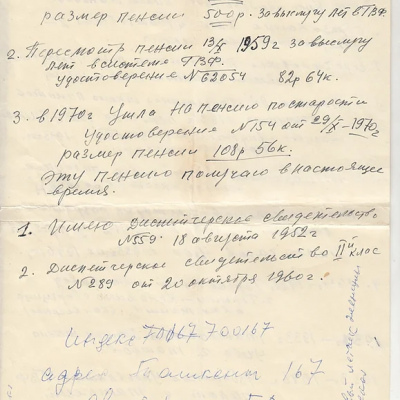 размер пенсии 500р. За выслугу лет в ГВФ.
2. Пересмотр пенсии 13/X 1959г за выслугу
лет в системе ГВФ.
удостоверение №62054 82р 64к.
3. в 1970г Ушла на пенсию по старости
Удостоверение №154 от 29/X-1970г
размер пенсии 108р 56к.
Эту пенсию получаю в настоящее
время.
1. Имею диспетчерское свидетельство
№559. 18 августа 1952г
2. Диспетчерское свидетельство IIй клас
№289 от 20 октября 1960г.
Индекс 700167
адрес Ташкент 167